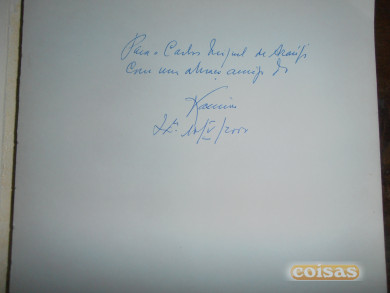 Para o Carlos Miguel de Araújo
Com um abraço amigo do
Lxª. 10/V/2000
coisas